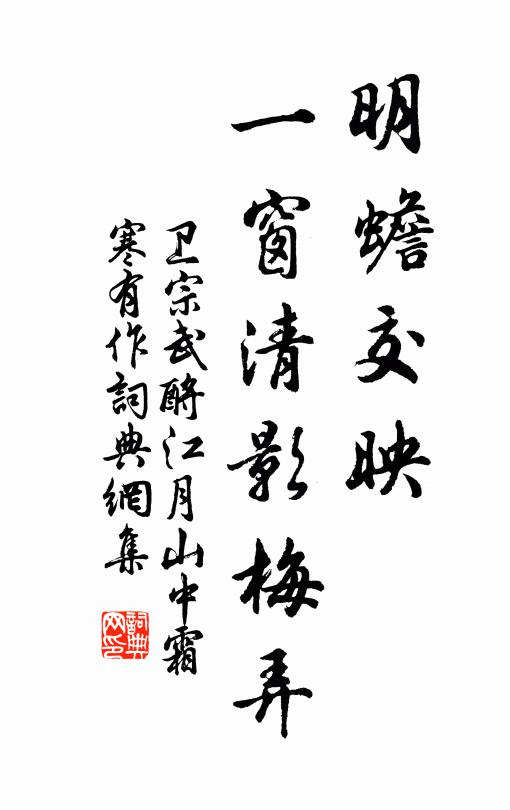 明蟾交映
一窗清影梅弄
卫宗武酹江月山中霜
寒有作詞典網集
詞典网印